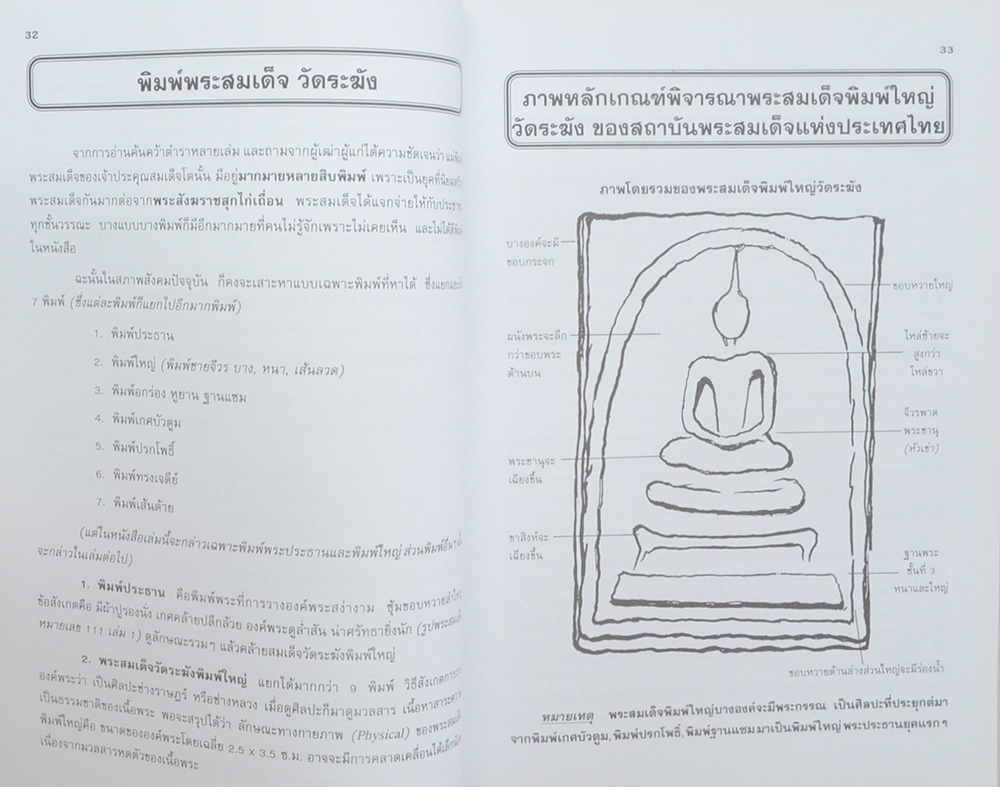 32
พิมพ์พระสมเด็จ วัดระฆัง
จากการอ่านค้นคว้าตำราหลายเล่ม และถามจากผู้เฒ่าผู้แก่ได้ความชัดเจนว่า
พระสมเด็จของเจ้าประคุณสมเด็จโตนั้น มีอยู่มากมายหลายสิบพิมพ์ เพราะเป็นยุคที่นิยม
พระสมเด็จกันมากต่อจากพระสังฆราชสุกไก่เถื่อน พระสมเด็จได้แจกจ่ายให้กับ
ทุกชั้นวรรณะ บางแบบบางพิมพ์ก็มีอีกมากมายที่คนไม่รู้จักเพราะไม่เคยเห็น และไม่ได้
ในหนังสือ
ฉะนั้นในสภาพสังคมปัจจุบัน ก็คงจะเสาะหาแบบเฉพาะพิมพ์ที่หาได้
7 พิมพ์ (ซึ่งแต่ละพิมพ์ก็แยกไปอีกมากพิมพ์)
1. พิมพ์ประธาน
2. พิมพ์ใหญ่ (พิมพ์ชายจีวร บาง, หนา, เส้นลวด)
3. พิมพ์อกร่อง หูยาน ฐานแซม
4. พิมพ์เกศบัวตูม
5. พิมพ์ปรกโพธิ์
6. พิมพ์ทรงเจดีย์
7. พิมพ์เส้นด้าย
(แต่ในหนังสือเล่มนี้จะกล่าวเฉพาะพิมพ์พระประธานและพิมพ์ใหญ่ ส่วนพิมพ์อื่นๆ
จะกล่าวในเล่มต่อไป)
1. พิมพ์ประธาน คือพิมพ์พระที่การวางองค์พระสง่างาม ซุ้มขอบหวายลำใหญ่
ข้อสังเกตคือ มีผ้าปูรองนั่ง เกศคล้ายปลีกล้วย องค์พระดูล่ำสัน น่าศรัทธายิ่งนัก (รูปพระสมเด็จ
หมายเลข 111 เล่ม 1) ดูลักษณะรวมๆ แล้วคล้ายสมเด็จวัดระฆังพิมพ์ใหญ่
2. พระสมเด็จวัดระฆังพิมพ์ใหญ่ แยกได้มากกว่า 9 พิมพ์ วิธีสังเกต
องค์พระว่า เป็นศิลปะช่างราษฎร์ หรือช่างหลวง เมื่อดูศิลปะก็มาดูมวลสาร
เป็นธรรมชาติของเนื้อพระ พอจะสรุปได้ว่า ลักษณะทางกายภาพ (Physical) ของพระสมเด็จ
พิมพ์ใหญ่คือ ขนาดขององค์พระโดยเฉลี่ย 2.5 x 3.5 ซ.ม. อาจจะมีการคลาดเคลื่อนได้เล็กน้อย
เนื่องจากมวลสารหดตัวของเนื้อพระ
33
ภาพหลักเกณฑ์พิจารณาพระสมเด็จพิมพ์ใหญ่
วัดระฆัง ของสถาบันพระสมเด็จแห่งประเทศไทย
ภาพโดยรวมของพระสมเด็จพิมพ์ใหญ่วัดระฆัง
บางองค์จะมี
ขอบกระจก
ขอบหวายใหญ่
ผนังพระจะลึก
กว่าขอบพระ
ด้านบน
ไหล่ซ้ายจะ
สูงกว่า
ไหล่ขวา
จีวรพาด
พระชานุ
(หัวเข่า)
พระชานุจะ
เฉียงขึ้น
ขาสิงห์จะ
เฉียงขึ้น
ฐานพระ
ชั้นที่ 3
หนาและใหญ่
ขอบหวายด้านล่างส่วนใหญ่จะมีร่องน้ำ
หมายเหตุ พระสมเด็จพิมพ์ใหญ่บางองค์จะมีพระกรรณ เป็นศิลปะที่ประยุกต์มา
จากพิมพ์เกศบัวตูม, พิมพ์ปรกโพธิ์, พิมพ์ฐานแซม มาเป็นพิมพ์ใหญ่ พระประธานยุคแรกๆ